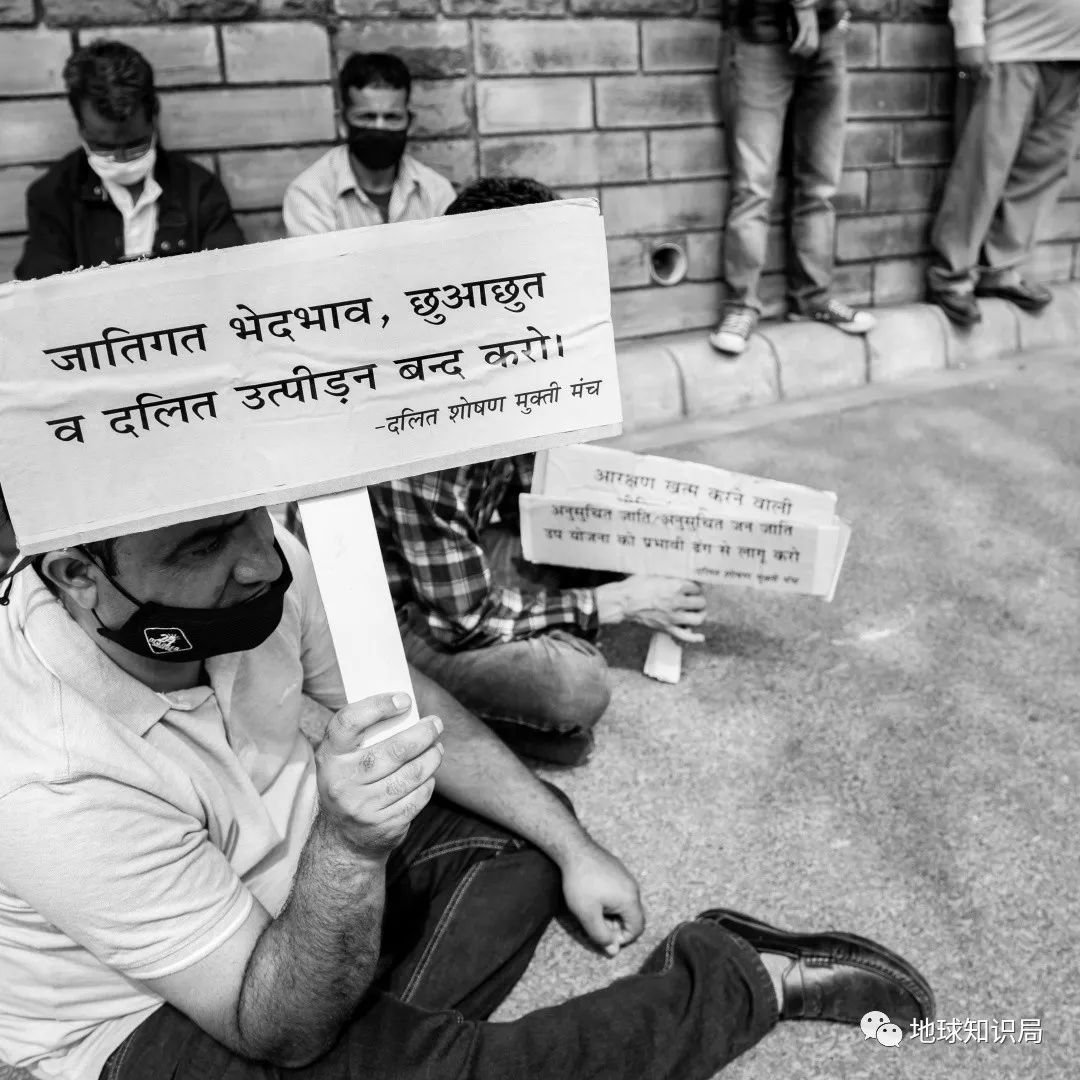 जातिगत भेदभाव, छुआछुत
व दलित उत्पीड़न बन्द करो।
-दलित शोषण मुक्ती मंच
आरक्षण खत्म करने वाली
अनुसुचित जाति/अनुसुचित जन जाति
उप योजना को प्रभावी ढंग से लागू करो
-दलित शोषण मुक्ती मंच
地球知识局